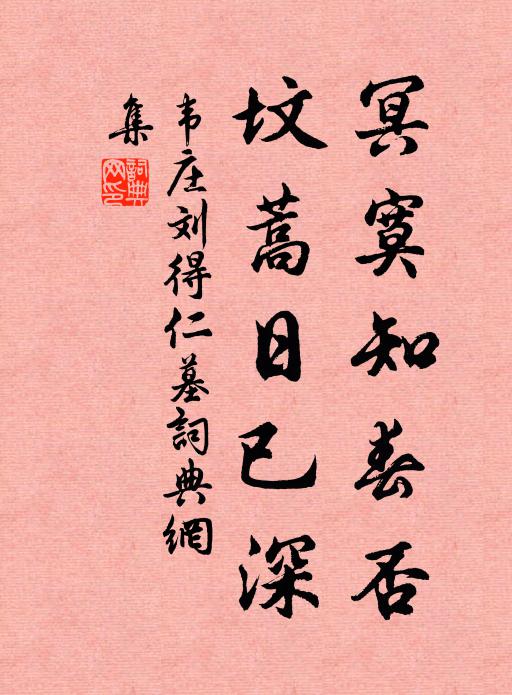 冥寞知春否
坟蒿日已深
韦庄刘得仁墓詞典網
集
詞典网印